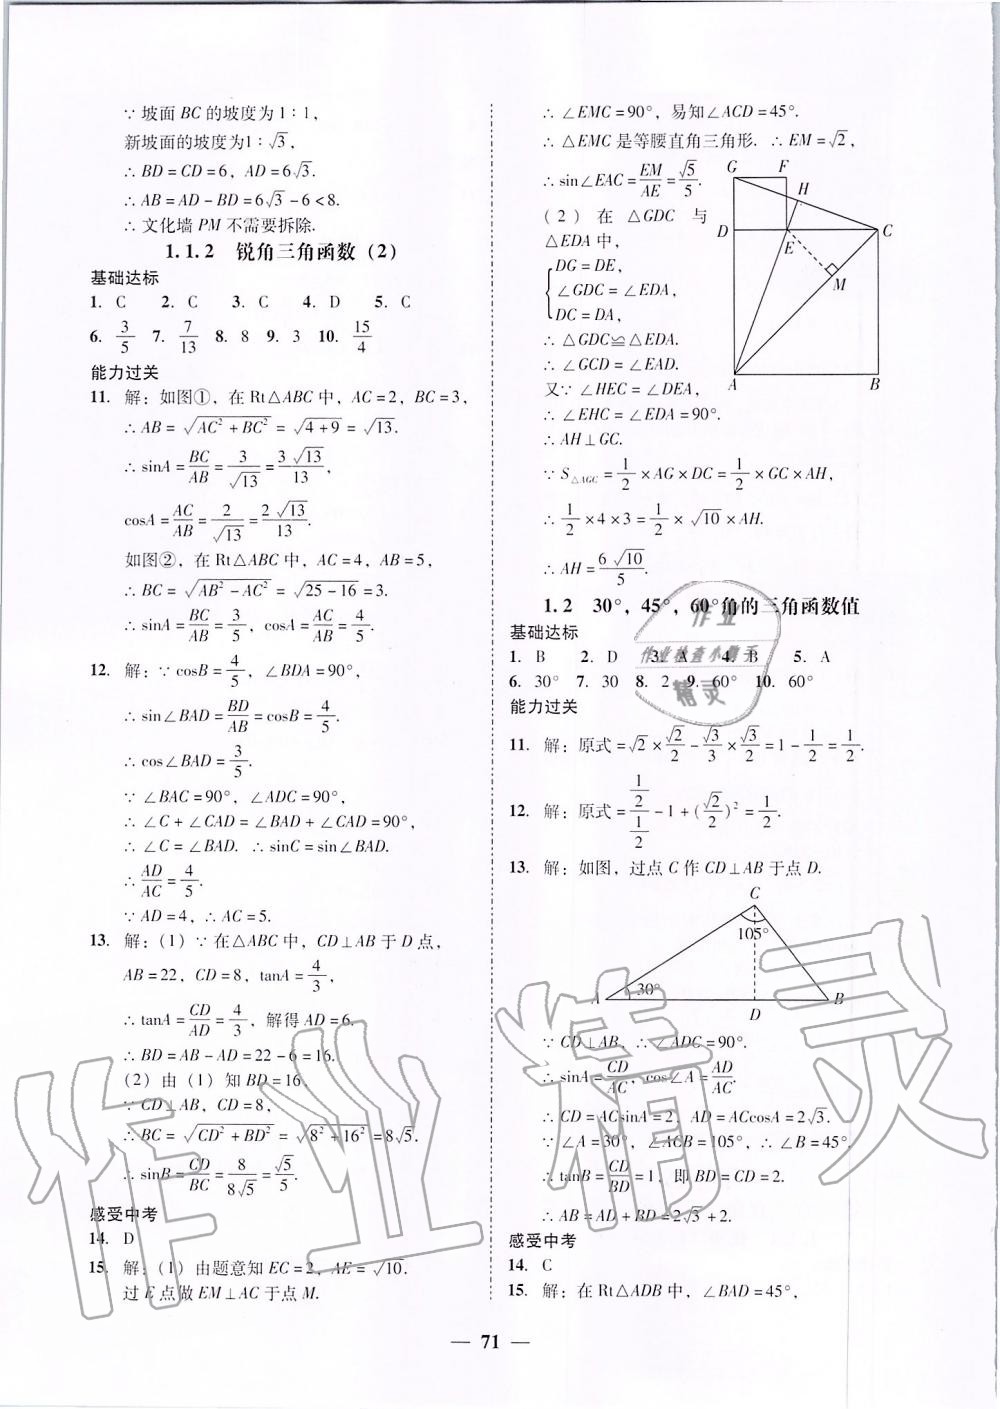 ∵ 坡面 BC 的坡度为 1∶1，
新坡面的坡度为1∶√3，
∴ BD = CD = 6，AD = 6√3.
∴ AB = AD − BD = 6√3 − 6 < 8.
∴ 文化墙 PM 不需要拆除.
1.1.2 锐角三角函数（2）
基础达标
1. C 2. C 3. C 4. D 5. C
6. 3/5 7. 7/13 8. 8 9. 3 10. 15/4
能力过关
11. 解：如图①，在 Rt△ABC 中，AC = 2，BC = 3，
∴ AB = √(AC² + BC²) = √(4 + 9) = √13.
∴ sinA = BC/AB = 3/√13 = 3√13/13，
cosA = AC/AB = 2/√13 = 2√13/13.
如图②，在 Rt△ABC 中，AC = 4，AB = 5，
∴ BC = √(AB² − AC²) = √(25 − 16) = 3.
∴ sinA = BC/AB = 3/5，cosA = AC/AB = 4/5.
12. 解：∵ cosB = 4/5，∠BDA = 90°，
∴ sin∠BAD = BD/AB = cosB = 4/5.
∴ cos∠BAD = 3/5.
∵ ∠BAC = 90°，∠ADC = 90°，
∴ ∠C + ∠CAD = ∠BAD + ∠CAD = 90°，
∴ ∠C = ∠BAD. ∴ sinC = sin∠BAD.
∴ AD/AC = 4/5.
∵ AD = 4，∴ AC = 5.
13. 解：（1）∵ 在△ABC 中，CD⊥AB 于 D 点，
AB = 22，CD = 8，tanA = 4/3，
∴ tanA = CD/AD = 4/3，解得 AD = 6.
∴ BD = AB − AD = 22 − 6 = 16.
（2）由（1）知 BD = 16.
∵ CD⊥AB，CD = 8，
∴ BC = √(CD² + BD²) = √(8² + 16²) = 8√5.
∴ sinB = CD/BC = 8/8√5 = √5/5.
感受中考
14. D
15. 解：（1）由题意知 EC = 2，AE = √10.
过 E 点做 EM⊥AC 于点 M.
∴ ∠EMC = 90°，易知∠ACD = 45°.
∴ △EMC 是等腰直角三角形. ∴ EM = √2，
∴ sin∠EAC = EM/AE = √5/5.
（2）在 △GDC 与
△EDA 中，
DG = DE，
∠GDC = ∠EDA，
DC = DA，
∴ △GDC≌△EDA.
∴ ∠GCD = ∠EAD.
又∵ ∠HEC = ∠DEA，
∴ ∠EHC = ∠EDA = 90°.
∴ AH⊥GC.
G F H D E C M A B
∵ S△AGC = 1/2 × AG × DC = 1/2 × GC × AH，
∴ 1/2 × 4 × 3 = 1/2 × √10 × AH.
∴ AH = 6√10/5.
1.2 30°，45°，60°角的三角函数值
基础达标
1. B 2. D 3. A 4. B 5. A
6. 30° 7. 30 8. 2 9. 60° 10. 60°
能力过关
11. 解：原式 = √2 × √2/2 − √3/3 × √3/2 = 1 − 1/2 = 1/2.
12. 解：原式 = (1/2)/(1/2) − 1 + (√2/2)² = 1/2.
13. 解：如图，过点 C 作 CD⊥AB 于点 D.
C
105°
A 30° B
D
∵ CD⊥AB，∴ ∠ADC = 90°.
∴ sinA = CD/AC，cos∠A = AD/AC.
∴ CD = ACsinA = 2，AD = ACcosA = 2√3.
∵ ∠A = 30°，∠ACB = 105°，∴ ∠B = 45°
∴ tanB = CD/BD = 1，即 BD = CD = 2.
∴ AB = AD + BD = 2√3 + 2.
感受中考
14. C
15. 解：在 Rt△ADB 中，∠BAD = 45°，
— 71 —
作业
作业检查小帮手
精灵
作业精灵